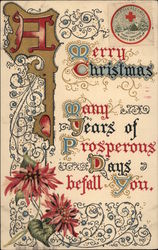 A
Merry
Christmas
Many
Years of
Prosperous
Days
befall You.